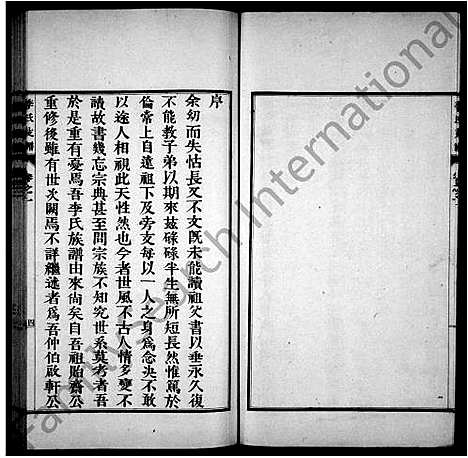 序
余幼而失怙長又不文既未能讀祖父書以垂永久復
不能教子弟以期來茲碌碌半生無所短長然惟篤於
倫常上自遠祖下及旁支每以一人之身為念央不敢
以途人相視此天性然也今者世風不古人情多變不
讀故書幾忘宗典甚至問宗族不知究世系莫考者吾
於是重有憂焉吾李氏族譜由來尚矣自吾祖貽齋公
重修後雖有世次闕焉不詳繼述者為吾仲伯啟軒公
李氏族譜
卷之一
四
FamilySearch International